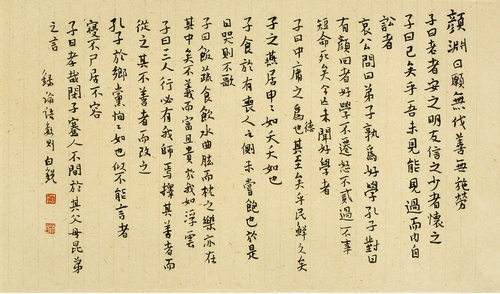 顏淵曰願無伐善無施勞
子曰老者安之朋友信之少者懷之
子曰已矣乎吾未見能見過而內自
訟者
哀公問曰弟子孰為好學孔子對曰
有顏回者好學不遷怒不貳過不幸
短命死矣今也未聞好學者
子曰中庸之為德也其至矣乎民鮮久矣
子之燕居申々如夭夭如也
子食於有喪人之側未嘗飽也於是
日哭則不歌
子曰飯蔬食飲水曲肱而枕之樂亦在
其中矣不義而富且貴於我如浮雲
子曰三人行必有我師焉擇其善者而
從之其不善者而改之
孔子於鄉黨恂々如也似不能言者
寢不尸居不容
子曰孝哉閔子騫人不間於其父母昆弟
之言
錄論語數則